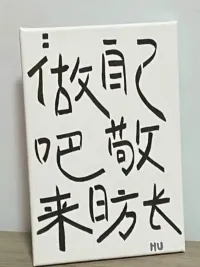 做自己
吧敬
来日方长
MU